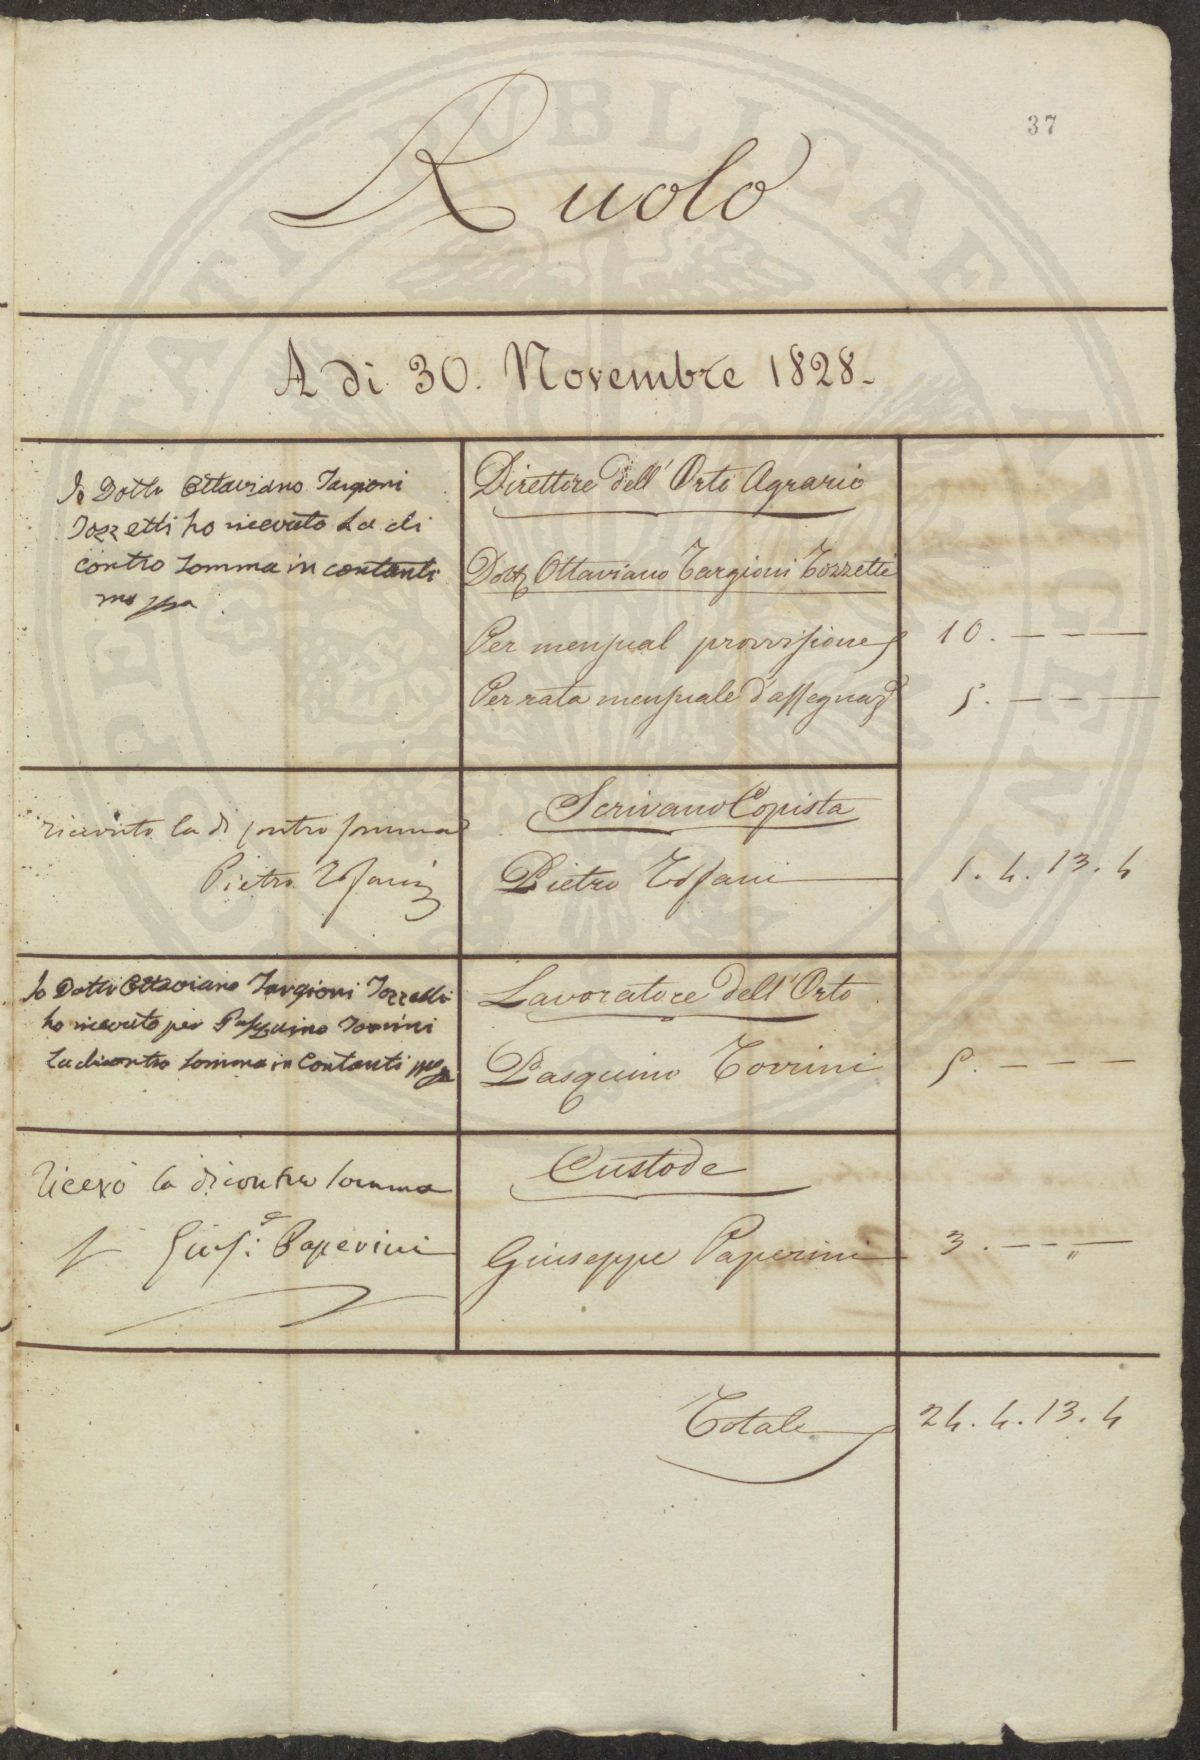 37
Ruolo
A di 30. Novembre 1828.
Io Dottr Ottaviano Targioni
Tozzetti ho ricevuto la di
contro somma in contanti
mo ppa
Direttore dell' Orto Agrario
Dottr Ottaviano Targioni Tozzetti
Per mensual provvisione 10. — — —
Per rata mensuale d'assegnaz 5. — — —
ricevuto la di contro somma
Pietro Tofani
Scrivano Copista
Pietro Tofani 1. 4. 13. 4
Io Dottr Ottaviano Targioni Tozzetti
ho ricevuto per Pasquino Torrini
la dicontro somma in Contanti
Lavoratore dell' Orto
Pasquino Torrini 5. — — —
Ricevò la dicontro somma
Gius.e Paperini
Custode
Giuseppe Paperini 3. — — —
Totale 24. 4. 13. 4